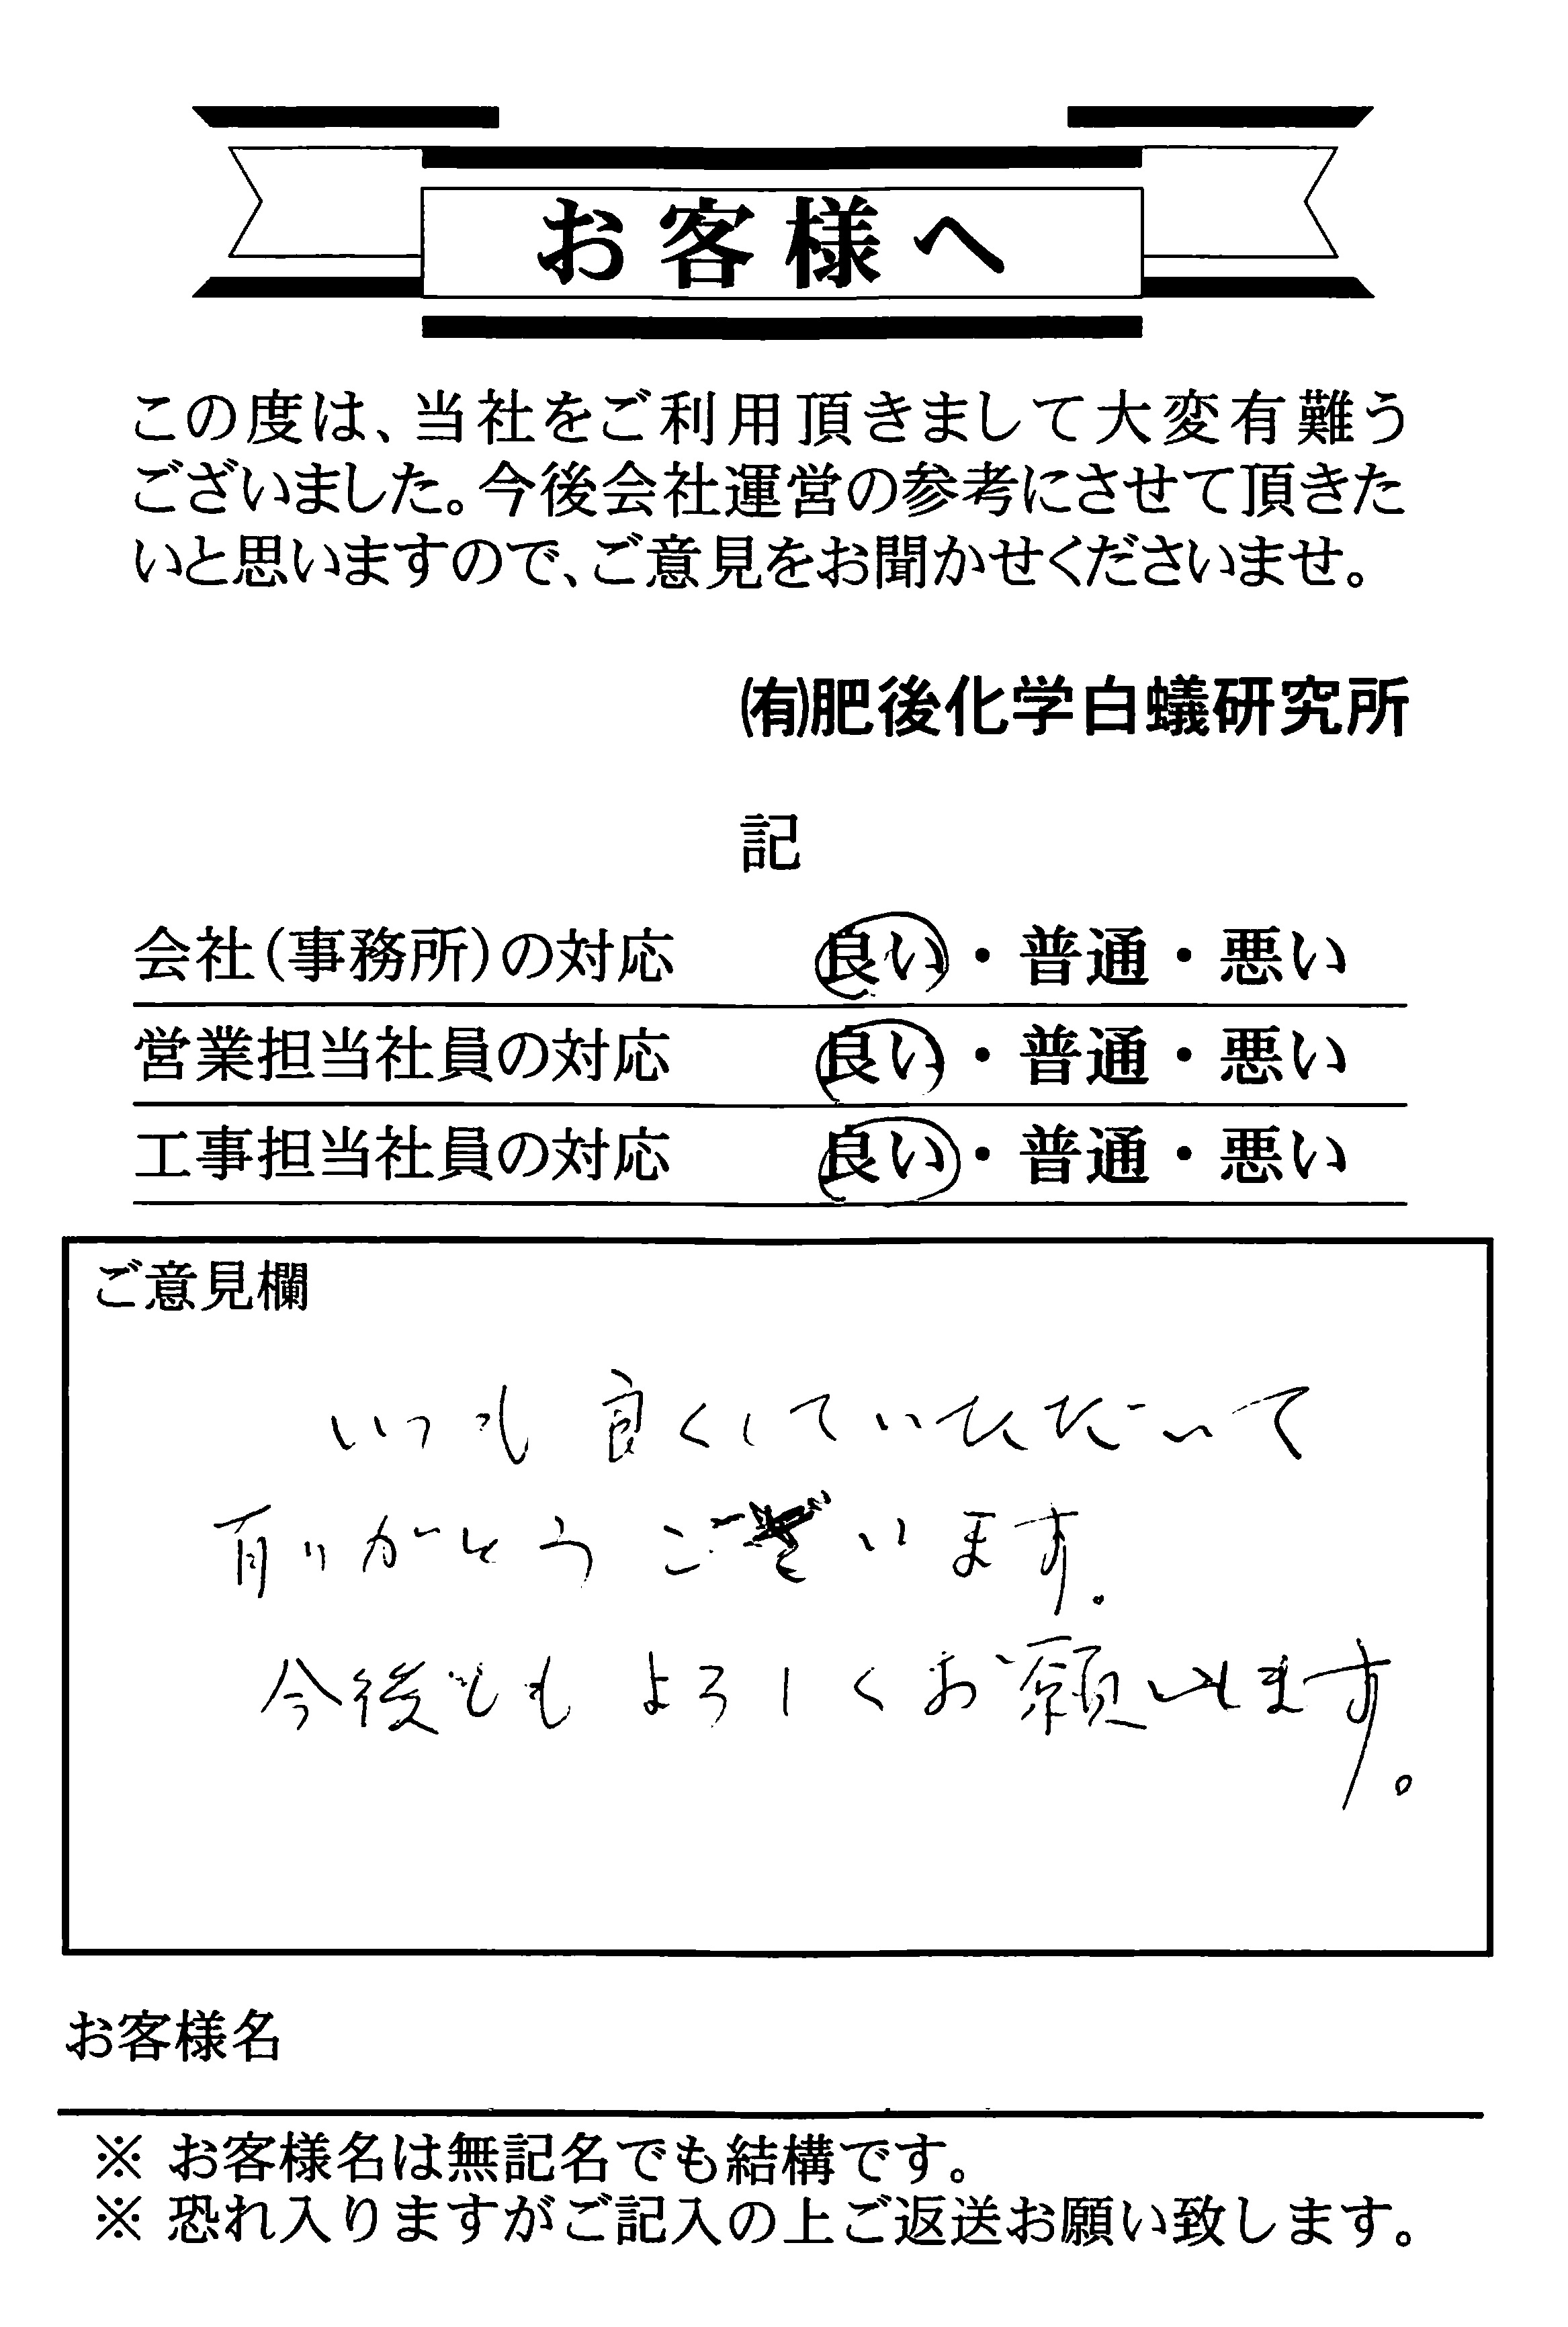 お客様へ
この度は、当社をご利用頂きまして大変有難う
ございました。今後会社運営の参考にさせて頂きた
いと思いますので、ご意見をお聞かせくださいませ。
㈲肥後化学白蟻研究所
記
会社(事務所)の対応 良い・普通・悪い
営業担当社員の対応 良い・普通・悪い
工事担当社員の対応 良い・普通・悪い
ご意見欄
いつも良くしていただいて
有りがとうございます。
今後ともよろしくお願いします。
お客様名
※ お客様名は無記名でも結構です。
※ 恐れ入りますがご記入の上ご返送お願い致します。